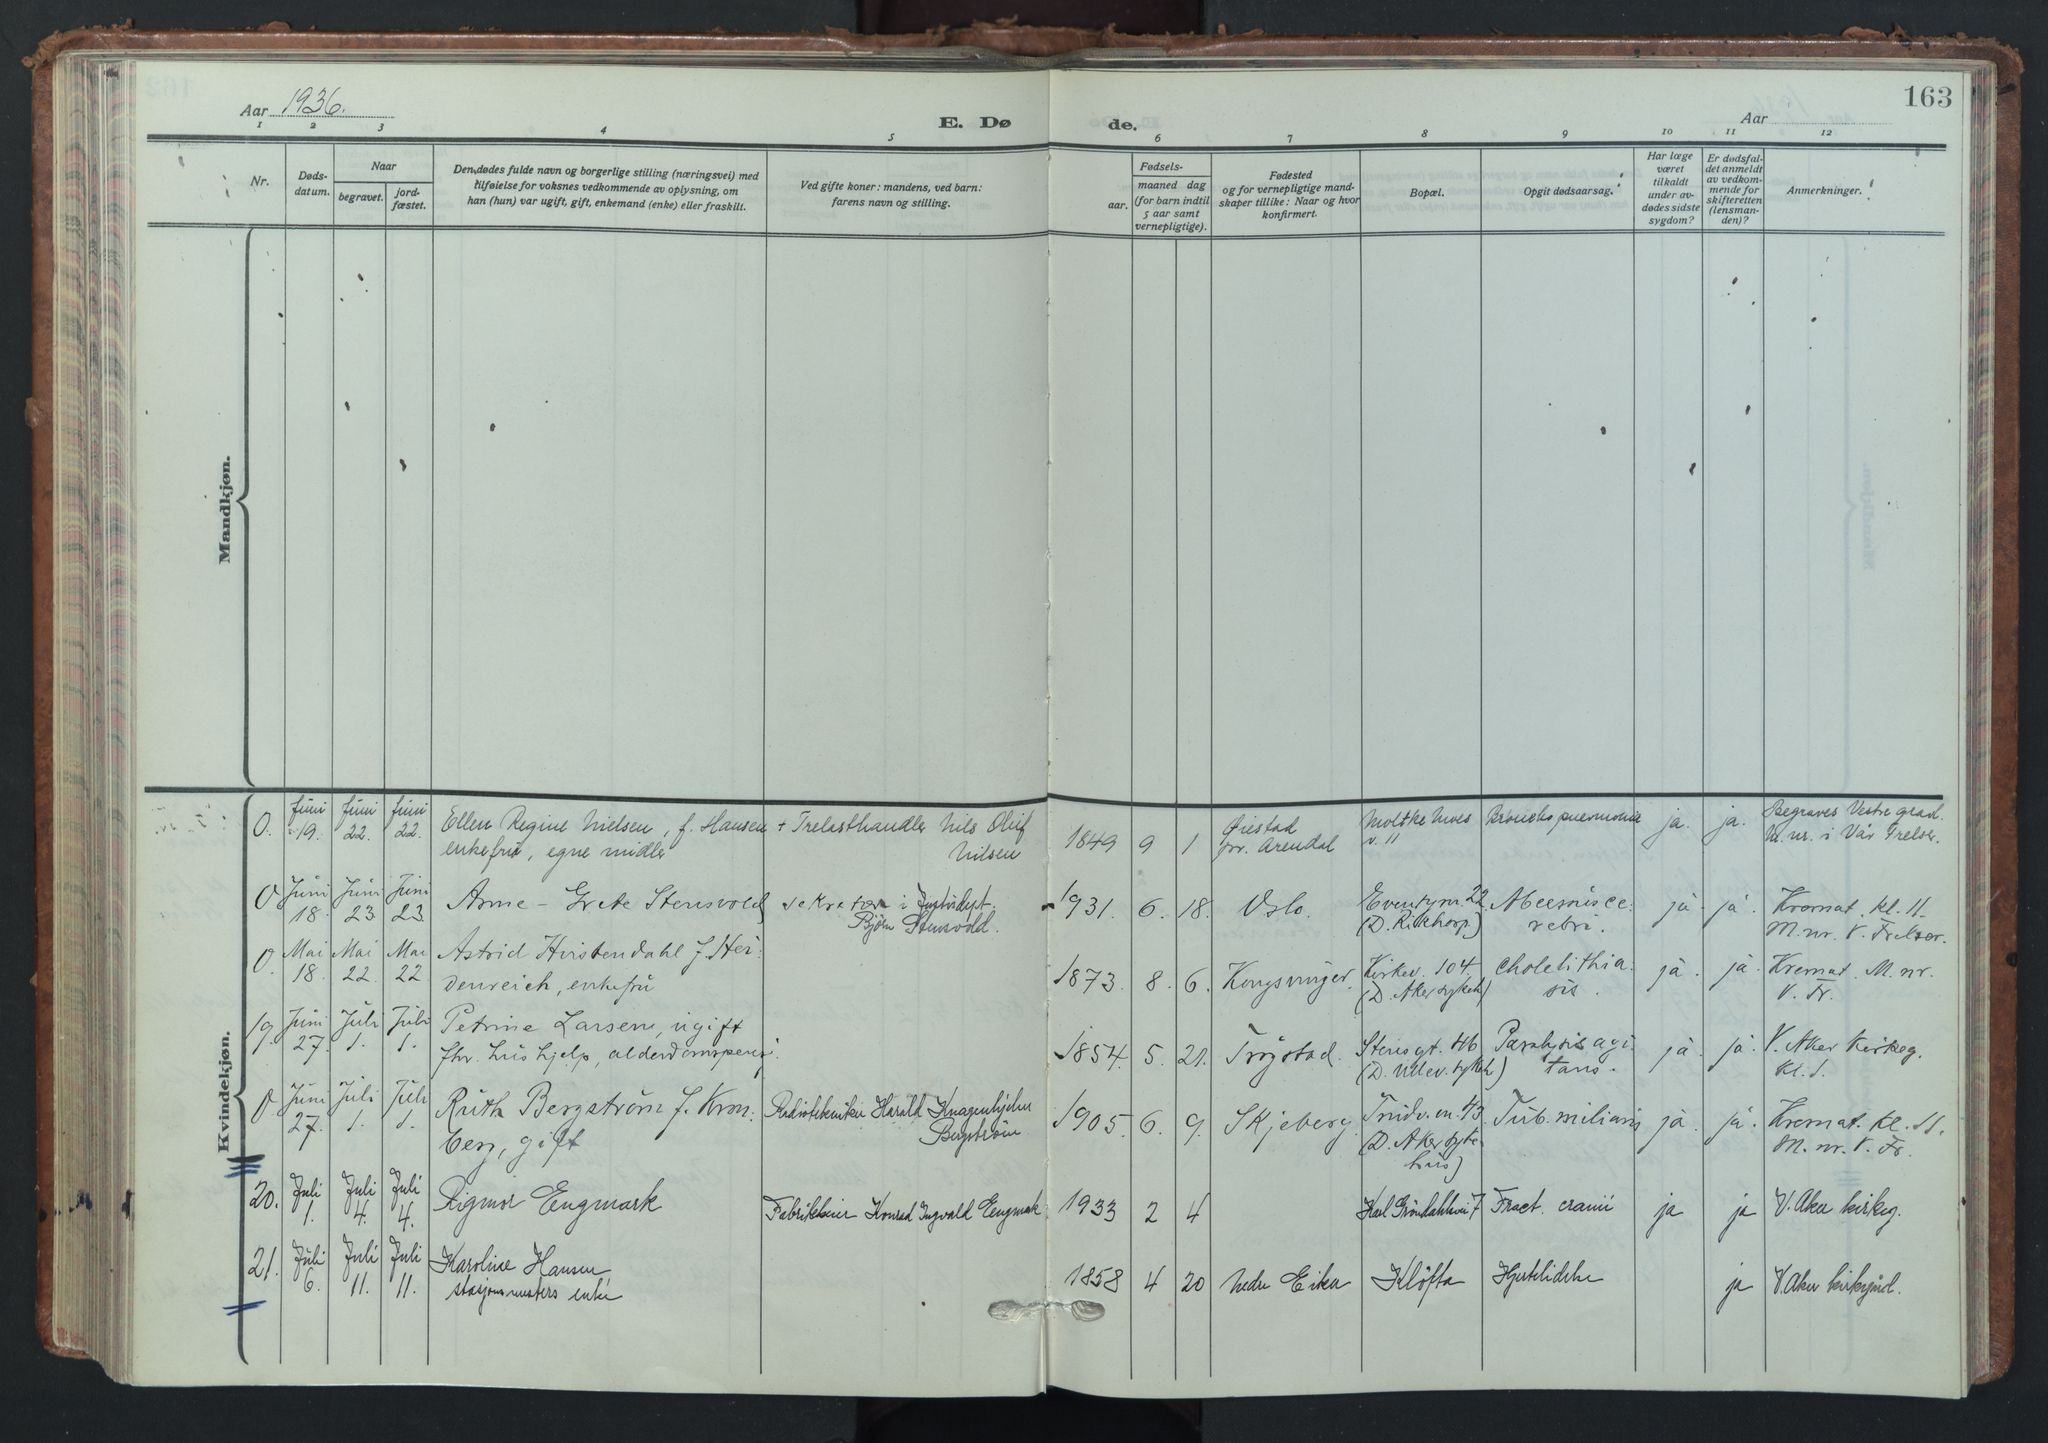 163
Aar 1936.
E. Døde.
Aar
1 2 3 4 5 6 7 8 9 10 11 12
Nr.
Døds-
datum.
Naar
begravet.
jord-
fæstet.
Den dødes fulde navn og borgerlige stilling (næringsvei) med
tilføielse for voksnes vedkommende av oplysning, om
han (hun) var ugift, gift, enkemand (enke) eller fraskilt.
Ved gifte koner: mandens, ved barn:
farens navn og stilling.
Fødsels-
aar.
maaned dag
(for barn indtil
5 aar samt
vernepligtige).
Fødested
og for vernepligtige mand-
skaper tillike: Naar og hvor
konfirmert.
Bopæl.
Opgit dødsaarsag.
Har læge
været
tilkaldt
under av-
dødes sidste
sygdom?
Er dødsfal-
det anmeldt
av vedkom-
mende for
skifteretten
(lensman-
den)?
Anmerkninger.
Mandkjøn.
Kvindekjøn.
0. Juni 19. Juni 22. Juni 22. Ellen Regine Nielsen, f. Hansen + Trelasthandler Nils Oluf 1849 9 1 Øiestad Moltke Moes Bronchopneumonia ja. ja. Begraves Vestre grad.
enkefru, egne midler Nilsen pr. Arendal v. 11 i Vår Frelser.
0 Juni 18. Juni 23 Juni 23 Anne-Grete Stensvold sekretær i Justisdept. 1931. 6. 18. Oslo. Eventyrv. 22. ja. ja. Kremat. kl. 11.
Bjørn Stensvold. (D. Rikshosp.) M.nr. V. Frelser.
0. Mai 18. Mai 22 Mai 22 Astrid Hirstendahl f. Hei- 1873. 8. 6. Kongsvinger. Kirkev. 104. Cholelithia- ja. ja. Kremat. M.nr.
denreich, enkefru (D. Aker sykeh) sis. V. Fr.
19. Juni 27. Juli 1. Juli 1. Petrine Larsen, ugift 1854. 5. 21. Trøgstad. Stensgt. 46 Paralysis agi- ja. ja. V. Aker Kirkeg.
fhv. hushjelp, alderdomspensj. (D. Ullev. sykeh) tans. kl. 1.
0 Juni 27. Juli 1. Juli 1. Ruth Bergström f. Kron- Radiotekniker Harald Knagenhjelm 1905. 6. 9. Skjeberg. Trudv. en. 43 Tub. miliaris ja. ja. Kremat. kl. 11.
berg, gift Bergström (D. Aker syke- M.nr. V. Fr.
hus)
20. Juli 1. Juli 4. Juli 4. Rigmor Engmark Fabrikkeier Konrad Ingvald Engmark 1933 2 4 Karl Gröndahlsvei 7 Fract. cranii ja ja V. Aker kirkeg.
21. Juli 6. Juli 11. Juli 11. Karoline Hansen 1858 4 20 Nedre Eiker Kløfta Hjertelidelse ja V. Aker kirkegård.
stasjonsmesters enke